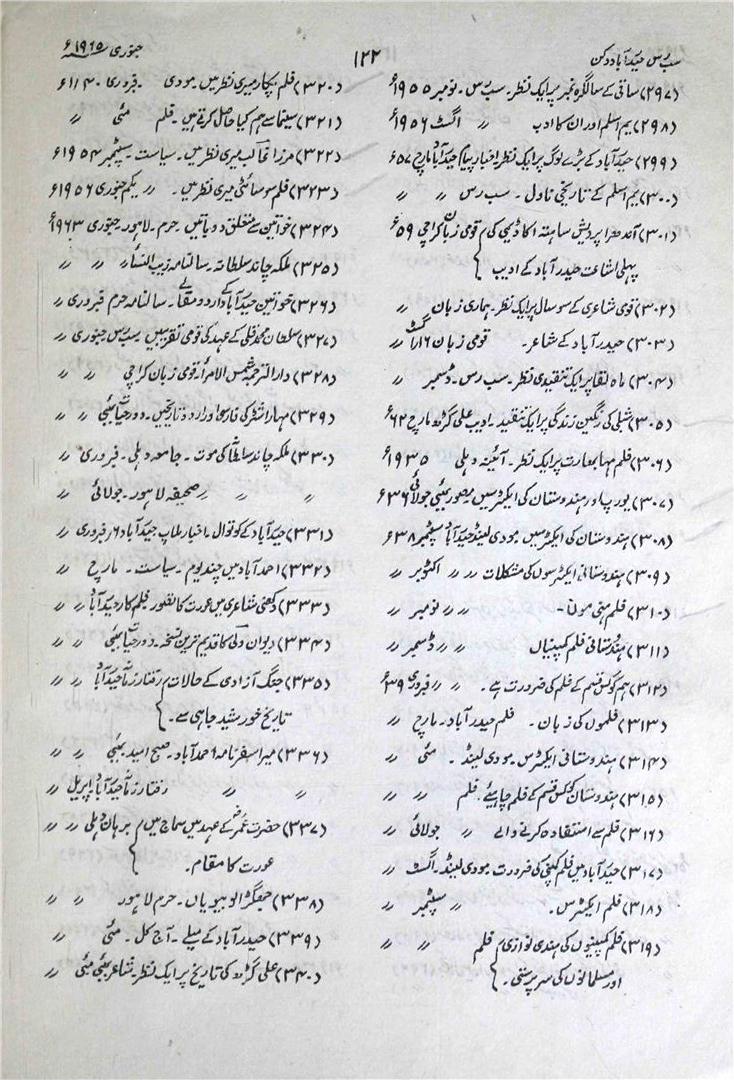 سب رس حیدرآباد دکن ۱۲۲ جنوری ۱۹۶۵ء
(۲۹۷) ساقی کے سالگرہ نمبر پر ایک نظر۔ سب رس۔ نومبر ۱۹۵۵ء
(۲۹۸) یم اسلم اور ان کا ادب 〃 اگست ۱۹۵۶ء
(۲۹۹) حیدرآباد کے بڑے لوگ پر ایک نظر اخبار پیام حیدرآباد مارچ ۵۷ء
(۳۰۰) یم اسلم کے تاریخی ناول۔ سب رس 〃 〃
(۳۰۱) آندھرا پردیش ساہتیہ اکاڈیمی کی قومی زبان کراچی ۵۹ء
پہلی اشاعت حیدرآباد کے ادیب
(۳۰۲) قومی شاعری کے سو سال پر ایک نظر۔ ہماری زبان 〃
(۳۰۳) حیدرآباد کے شاعر۔ قومی زبان ۱۶ اگست 〃
(۳۰۴) ماہ لقا پر ایک تنقیدی نظر۔ سب رس۔ ڈسمبر 〃
(۳۰۵) شبلی کی رنگین زندگی پر ایک تنقید۔ ادیب علی گڑھ مارچ ۶۲ء
(۳۰۶) فلم مہابھارت پر ایک نظر۔ آئینہ دہلی ۱۹۳۵ء
(۳۰۷) یورپ اور ہندوستان کی ایکٹرسیں مصور بمبئی جولائی ۳۶ء
(۳۰۸) ہندوستان کی ایکٹرسیں مووی لینڈ حیدرآباد سپٹمبر ۳۸ء
(۳۰۹) ہندوستانی ایکٹرسوں کی مشکلات 〃 〃 اکٹوبر 〃
(۳۱۰) فلم بینی مونا۔ 〃 〃 نومبر 〃
(۳۱۱) ہندوستانی فلم کمپنیاں 〃 〃 ڈسمبر 〃
(۳۱۲) ہم کو کس قسم کے فلم کی ضرورت ہے۔ 〃 〃 فبروری ۳۹ء
(۳۱۳) فلموں کی زبان۔ فلم حیدرآباد۔ مارچ 〃
(۳۱۴) ہندوستانی ایکٹرس۔ مووی لینڈ۔ مئی 〃
(۳۱۵) ہندوستان کو کس قسم کے فلم چاہیئے۔ فلم 〃 〃
(۳۱۶) فلم سے استفادہ کرنے والے 〃 جولائی 〃
(۳۱۷) حیدرآباد میں فلم کمپنی کی ضرورت مووی لینڈ۔ اگست 〃
(۳۱۸) فلم ایکٹرس۔ 〃 〃 سپٹمبر 〃
(۳۱۹) فلم کمپنیوں کی ہندی نوازی فلم 〃 〃
اور مسلمانوں کی سرپرستی۔
(۳۲۰) فلم پکار میری نظر میں۔ مووی۔ فبروری ۴۰ء
(۳۲۱) سینما سے ہم کیا حاصل کرتے ہیں۔ فلم مئی 〃
(۳۲۲) مرزا غالب میری نظر میں۔ سیاست۔ سپٹمبر ۱۹۵۴ء
(۳۲۳) فلم سوسائٹی میری نظر میں۔ 〃 یکم جنوری ۱۹۵۶ء
(۳۲۴) خواتین سے متعلق دو باتیں۔ حرم۔ لاہور۔ جنوری ۱۹۶۳ء
(۳۲۵) ملکہ چاند سلطانہ۔ سالنامہ زیب النساء 〃 〃
(۳۲۶) خواتین حیدرآباد کے اردو مقالے۔ سالنامہ حرم فبروری 〃
(۳۲۷) سلطان محمد قلی کے عہد کی قومی تقریبیں سب رس جنوری 〃
(۳۲۸) دارالترجمہ شمس الامراء۔ قومی زبان کراچی 〃 〃
(۳۲۹) مہاراشٹر کی فارسی اور اردو تاریخیں۔ دور حیات بمبئی 〃 〃
(۳۳۰) ملکہ چاند سلطانہ کی موت۔ جامعہ دہلی۔ فبروری 〃
〃 〃 〃 صحیفہ لاہور۔ جولائی 〃
(۳۳۱) حیدرآباد کے کوتوال۔ اخبار ملاپ حیدرآباد ۶ فبروری 〃
(۳۳۲) احمدآباد میں چند یوم۔ سیاست۔ مارچ 〃
(۳۳۳) دکھنی شاعری میں عورت کا تصور فیلم کار حیدرآباد 〃 〃
(۳۳۴) دیوان ولی کا قدیم ترین نسخہ۔ دور حیات بمبئی 〃 〃
(۳۳۵) جنگ آزادی کے حالات رفتار زمانہ حیدرآباد 〃 〃
تاریخ خورشید جاہی سے۔
(۳۳۶) میرا سفرنامہ احمدآباد۔ صبح امید بمبئی 〃 〃
〃 〃 رفتار زمانہ حیدرآباد اپریل 〃
(۳۳۷) حضرت عمرؓ کے عہد میں سماج میں برہان دہلی 〃 〃
عورت کا مقام۔
(۳۳۸) جھگڑالو بیویاں۔ حرم لاہور 〃 〃
(۳۳۹) حیدرآباد کے میلے۔ آج کل۔ مئی 〃
(۳۴۰) علی گڑھ کی تاریخ پر ایک نظر۔ شاعر بمبئی مئی 〃